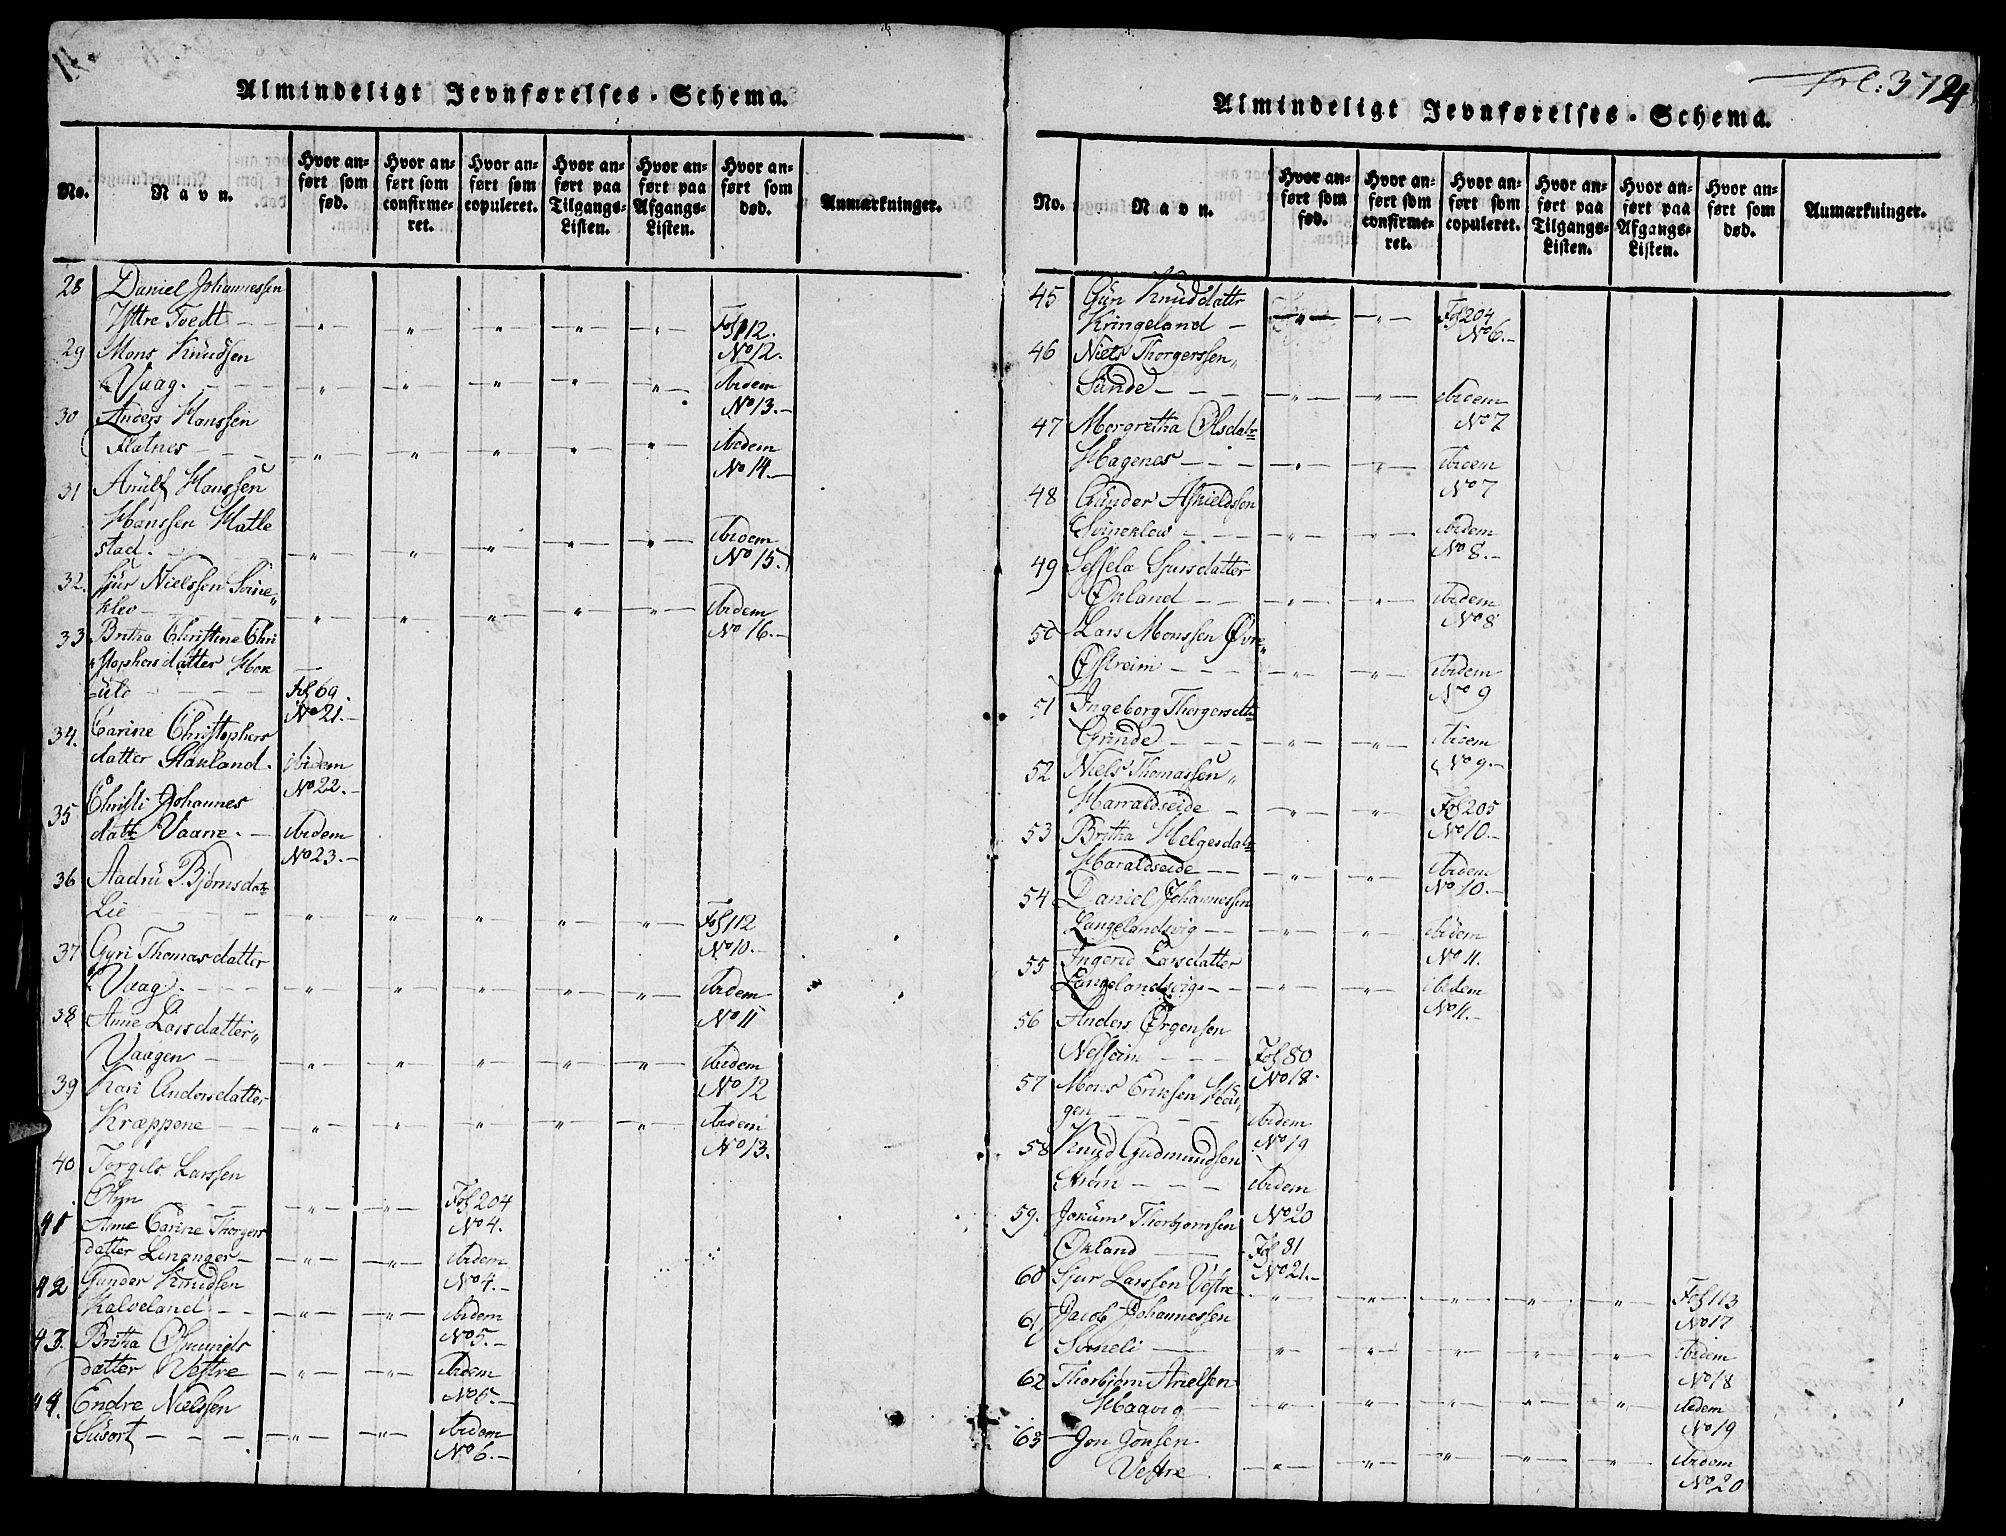 Almindeligt Jevnførelses-Schema.
No. Navn. Hvor anført som fød. Hvor anført som confirmeret. Hvor anført som copuleret. Hvor anført paa Tilgangs-Listen. Hvor anført paa Afgangs-Listen. Hvor anført som død. Anmærkninger.
28 Daniel Johannessen
Yttre Toedt — " " " " " Fol 112. No 12.
29 Mons Knudsen
Vaag. — " " " " " ibidem No 13.—
30 Anders Hanssen
Flatnes — " " " " " ibidem No 14—
31 Anülf Hanssen
Hanssen Hatle
stad. " " " " " ibidem No 15.
32. Sjur Nielssen Svine„
klev — " " " " " ibidem No 16.—
33 Britha Christine Chri
stophersdatter Hok
uld — Fol 69. No 21.—
34. Carine Christophers
datter Stakland. ibidem No 22.—
35 Christi Johannes
datt Vaarre. — ibidem No 23.—
36 Aadru Bjørnsdatr
Lie — " " " " " Fol 112 No 10.—
37 Gyri Thomasdatter
Vaag. — " " " " " ibidem No 11
38 Anne Larsdatter„
Vaagen — " " " " " ibidem No 12
39 Kari Andersdatter
Kræppene — " " " " " ibidem No 13.
40 Torgils Larssen
" " Fol 204 No 4.
41 Anne Carine Thorgers
datter Linanger — " " ibidem No 4.—
42 Gunder Knudsen
Kalveland — " " ibidem No 5.—
43. Britha Osmunds
datter Vestre — " " ibidem No 5.—
44. Endre Nielssen
Susort — " " ibidem No 6.—
Frl: 372
4
Almindeligt Jevnførelses-Schema.
No. Navn. Hvor anført som fød. Hvor anført som confirmeret. Hvor anført som copuleret. Hvor anført paa Tilgangs-Listen. Hvor anført paa Afgangs-Listen. Hvor anført som død. Anmærkninger.
45 Guri Knudsdattr
Kringeland — " " Fol 204 No 6.—
46 Niels Thorgerssen„
Sunde — " " ibidem No 7
47 Morgretha Olsdatr
Hagenes — " " ibidem No 7
48 Gunder Askieldssen
Svineklev — " " ibidem No 8.—
49 Sessela Sjursdatter
Økland — " " ibidem No 8
50 Lars Monssen Øvre„
Østreim — " " ibidem No 9
51 Ingeborg Thorgersdtr
Grinde — " " ibidem No 9—
52 Niels Thomassen„
Harraldseide — " " Fol 205 No 10.—
53 Britha Helgesdatr
Haraldseide — " " ibidem No 10.—
54 Daniel Johannessen
Langelandsvig — " " ibidem No 11.
55 Ingerid Larsdatter
Langelandsvig — " " ibidem No 11.—
56 Anders Ørgensen
Nesseim — Fol 80 No 18.
57 Mons Eriksen Hau,
gen — ibidem No 19
58 Knud Gudmundsen
Strøm — ibidem No 20
59. Jokum Thorbjørnsen
Økland — Fol 81 No 21.—
60 Sjur Larssen Vestre — " " " " " Fol 113 No 17
61 Jacob Johannessen
Svineli — " " " " " ibidem No 18
62 Thorbjørn Arielsen
Haavig — " " " " " ibidem No 19
63 Jon Jonsen
Vestre " " " " " ibidem No 20